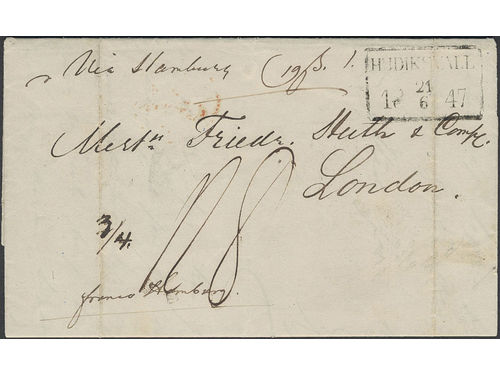 Via Hamburg
HUDIKSVALL
21
18 6 47
Messrs Friedr. Huth & Compc.
London.
3/4.
franco Hamburg